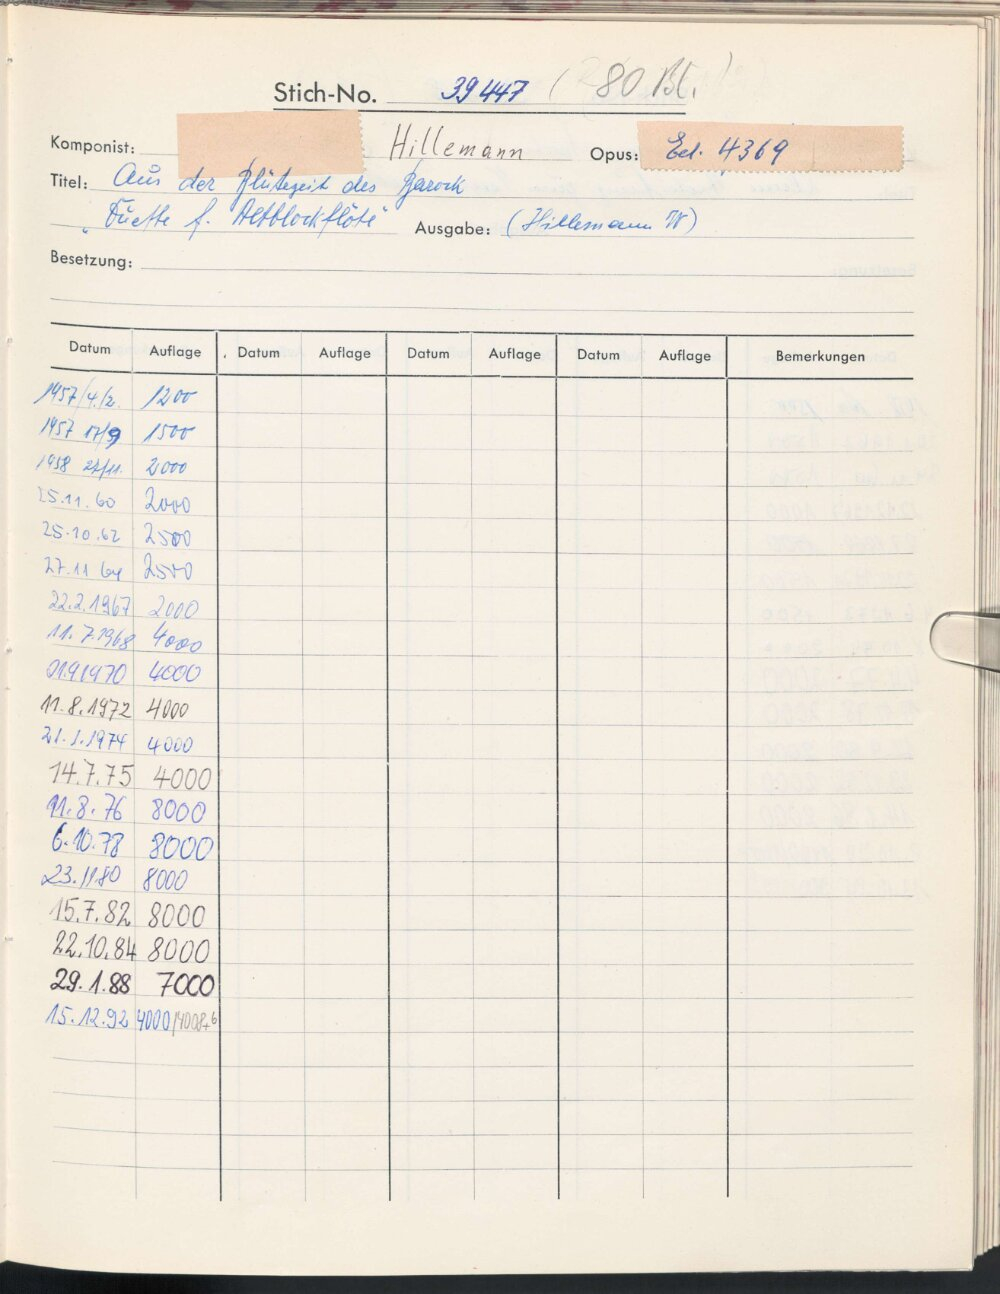 Stich-No. 39447 (80 Bl.)
Komponist: Hillemann Opus: Ed. 4369
Titel: Aus der Blütezeit des Barock
"Duette f. Altblockflöte" Ausgabe: (Hillemann W)
Besetzung:
Datum Auflage Datum Auflage Datum Auflage Datum Auflage Bemerkungen
1957/4./2. 1200
1957 17/9 1500
1958 27/11. 2000
25.11.60 2000
25.10.62 2500
27.11 64 2500
22.2.1967 2000
11.7.1968 4000
01.9.1970 4000
11.8.1972 4000
21.1.1974 4000
14.7.75 4000
11.8.76 8000
6.10.78 8000
23.1.80 8000
15.7.82 8000
22.10.84 8000
29.1.88 7000
15.12.92 4000/4008+6